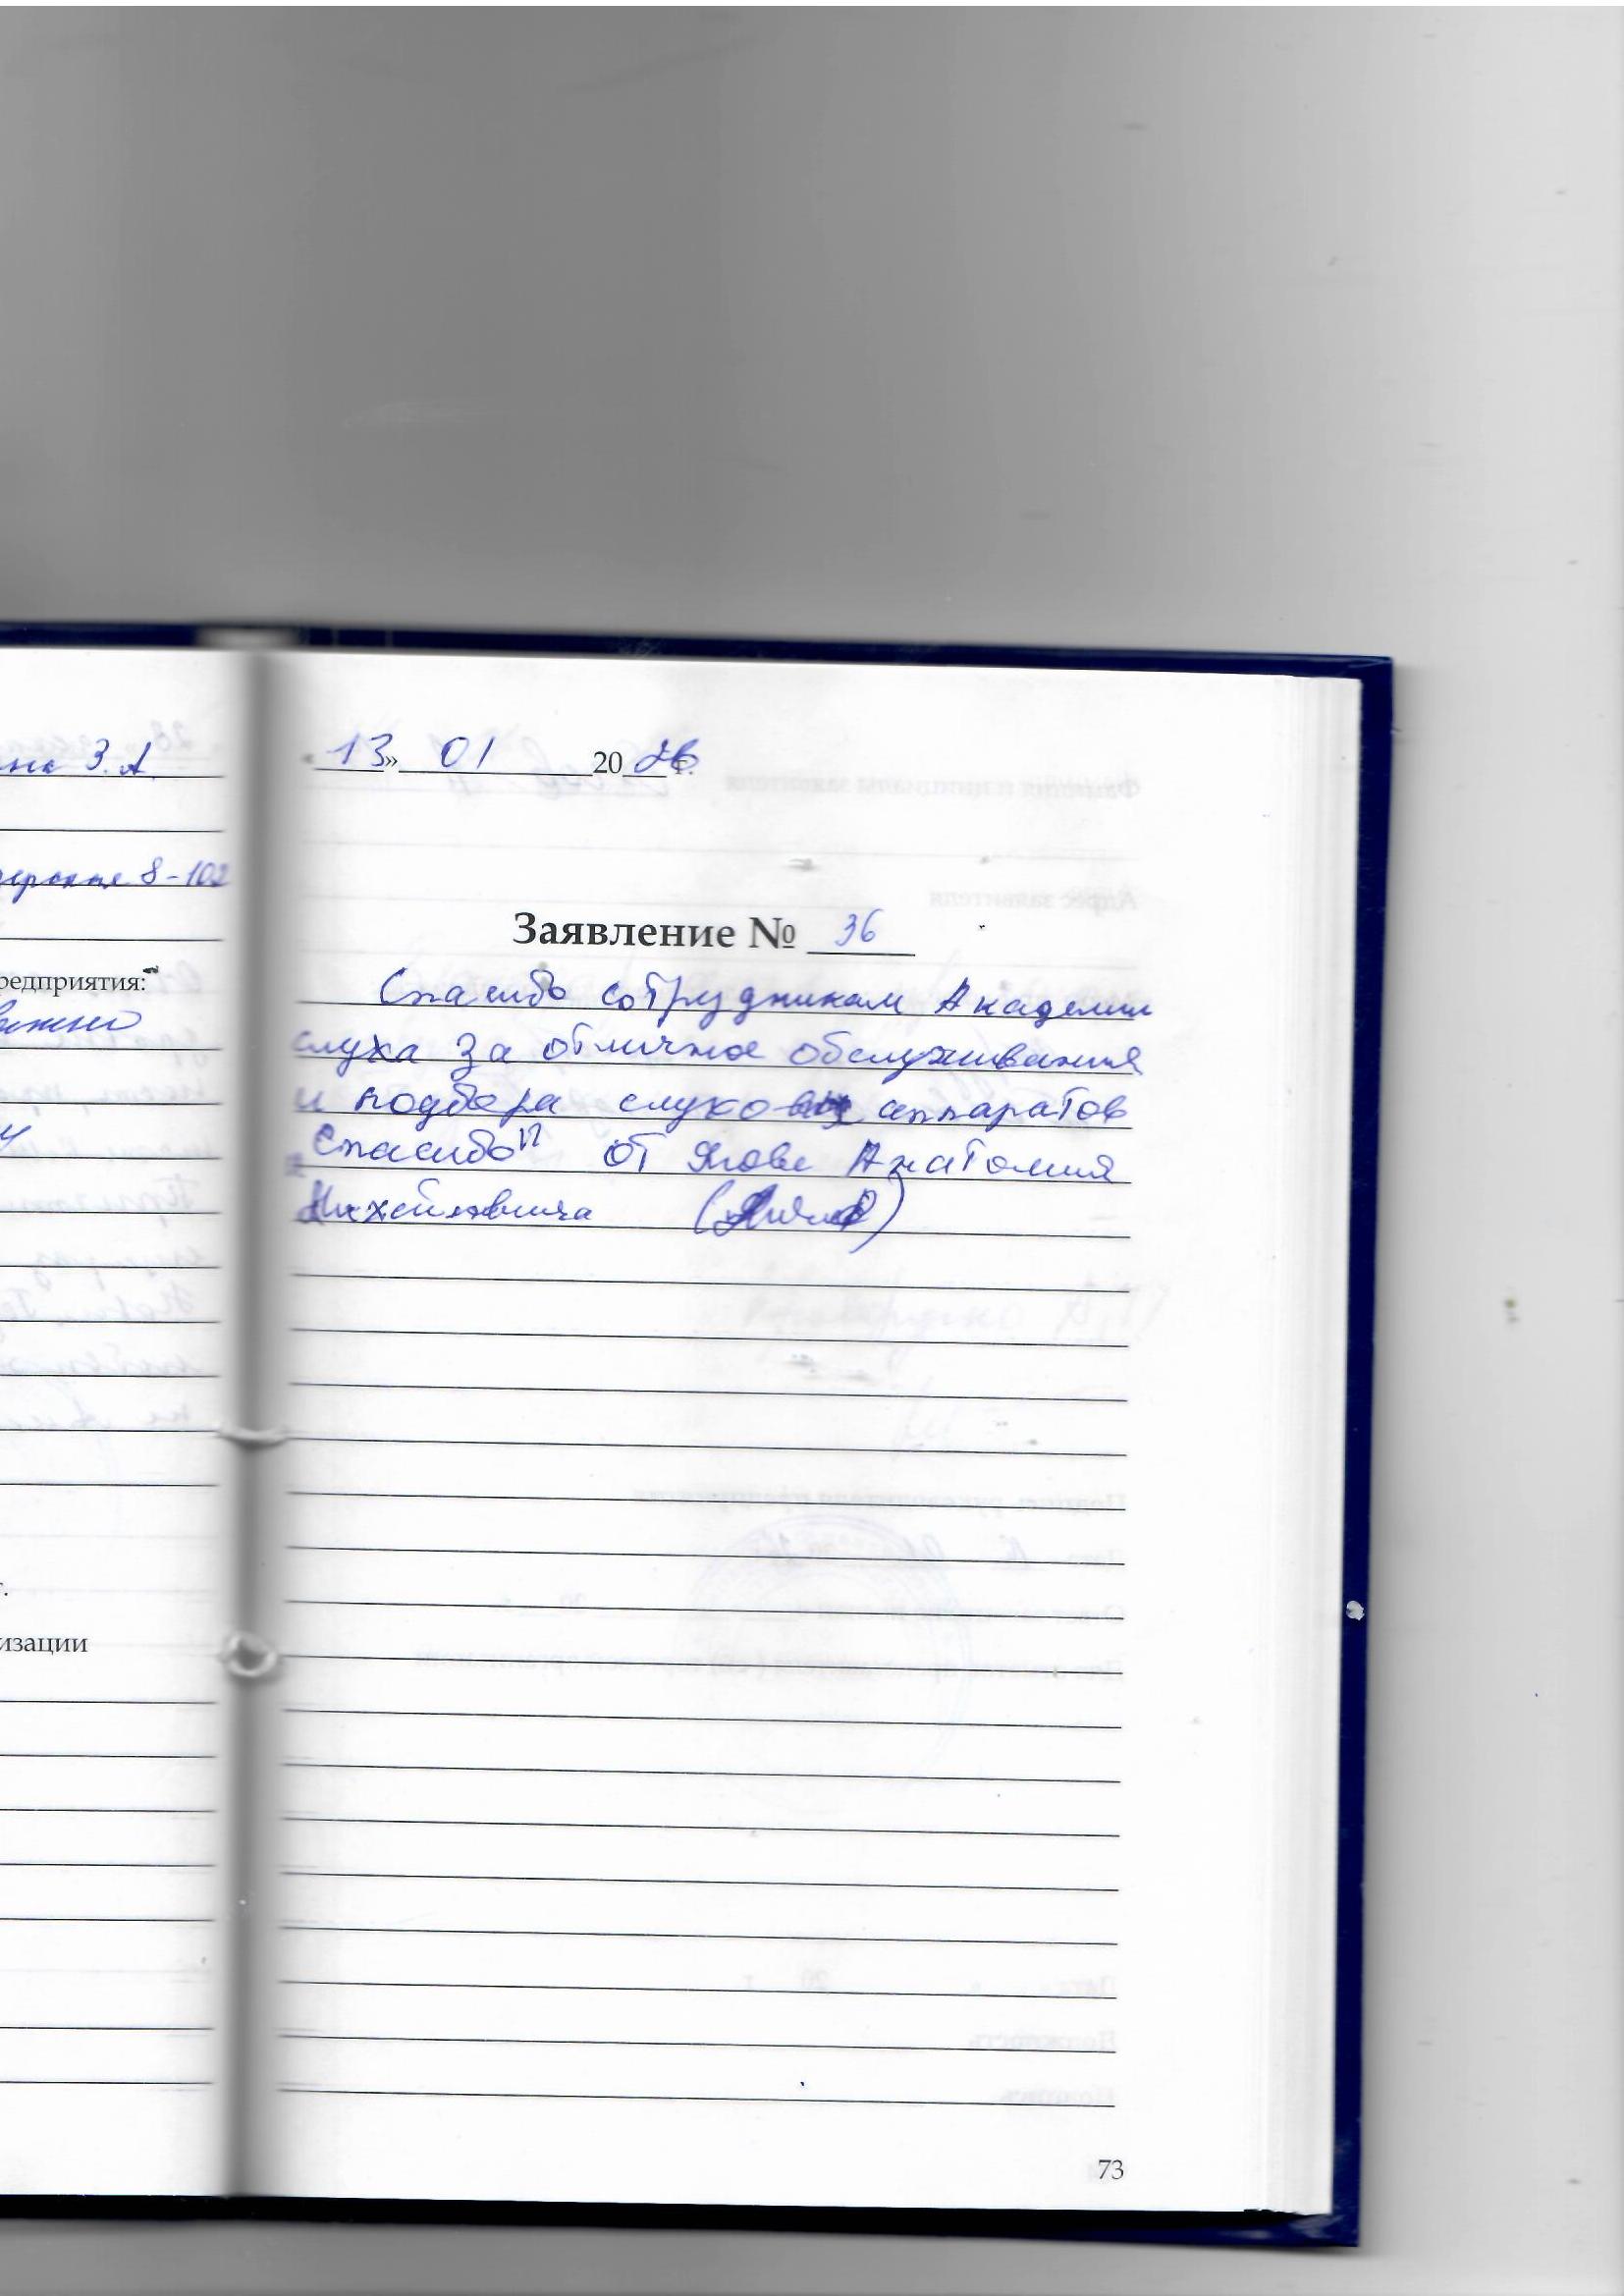 нк З.А.
8-102
редприятия:
г.
изации
13» 01 2026 г.
Заявление № 36
Спасибо сотрудникам Академии
слуха за отличное обслуживания
и подбора слуховых аппаратов
Спасибо от Анатолия
Михейловича
73